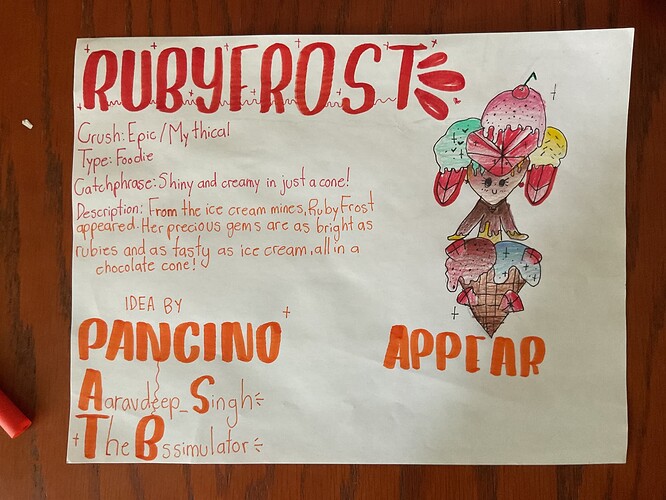 RUBYFROST
Crush: Epic/Mythical
Type: Foodie
Catchphrase: Shiny and creamy in just a cone!
Description: From the ice cream mines, RubyFrost
appeared. Her precious gems are as bright as
rubies and as tasty as ice cream, all in a
chocolate cone!
IDEA BY
PANCINO
Aaravdeep_Singh
The Bssimulator
APPEAR